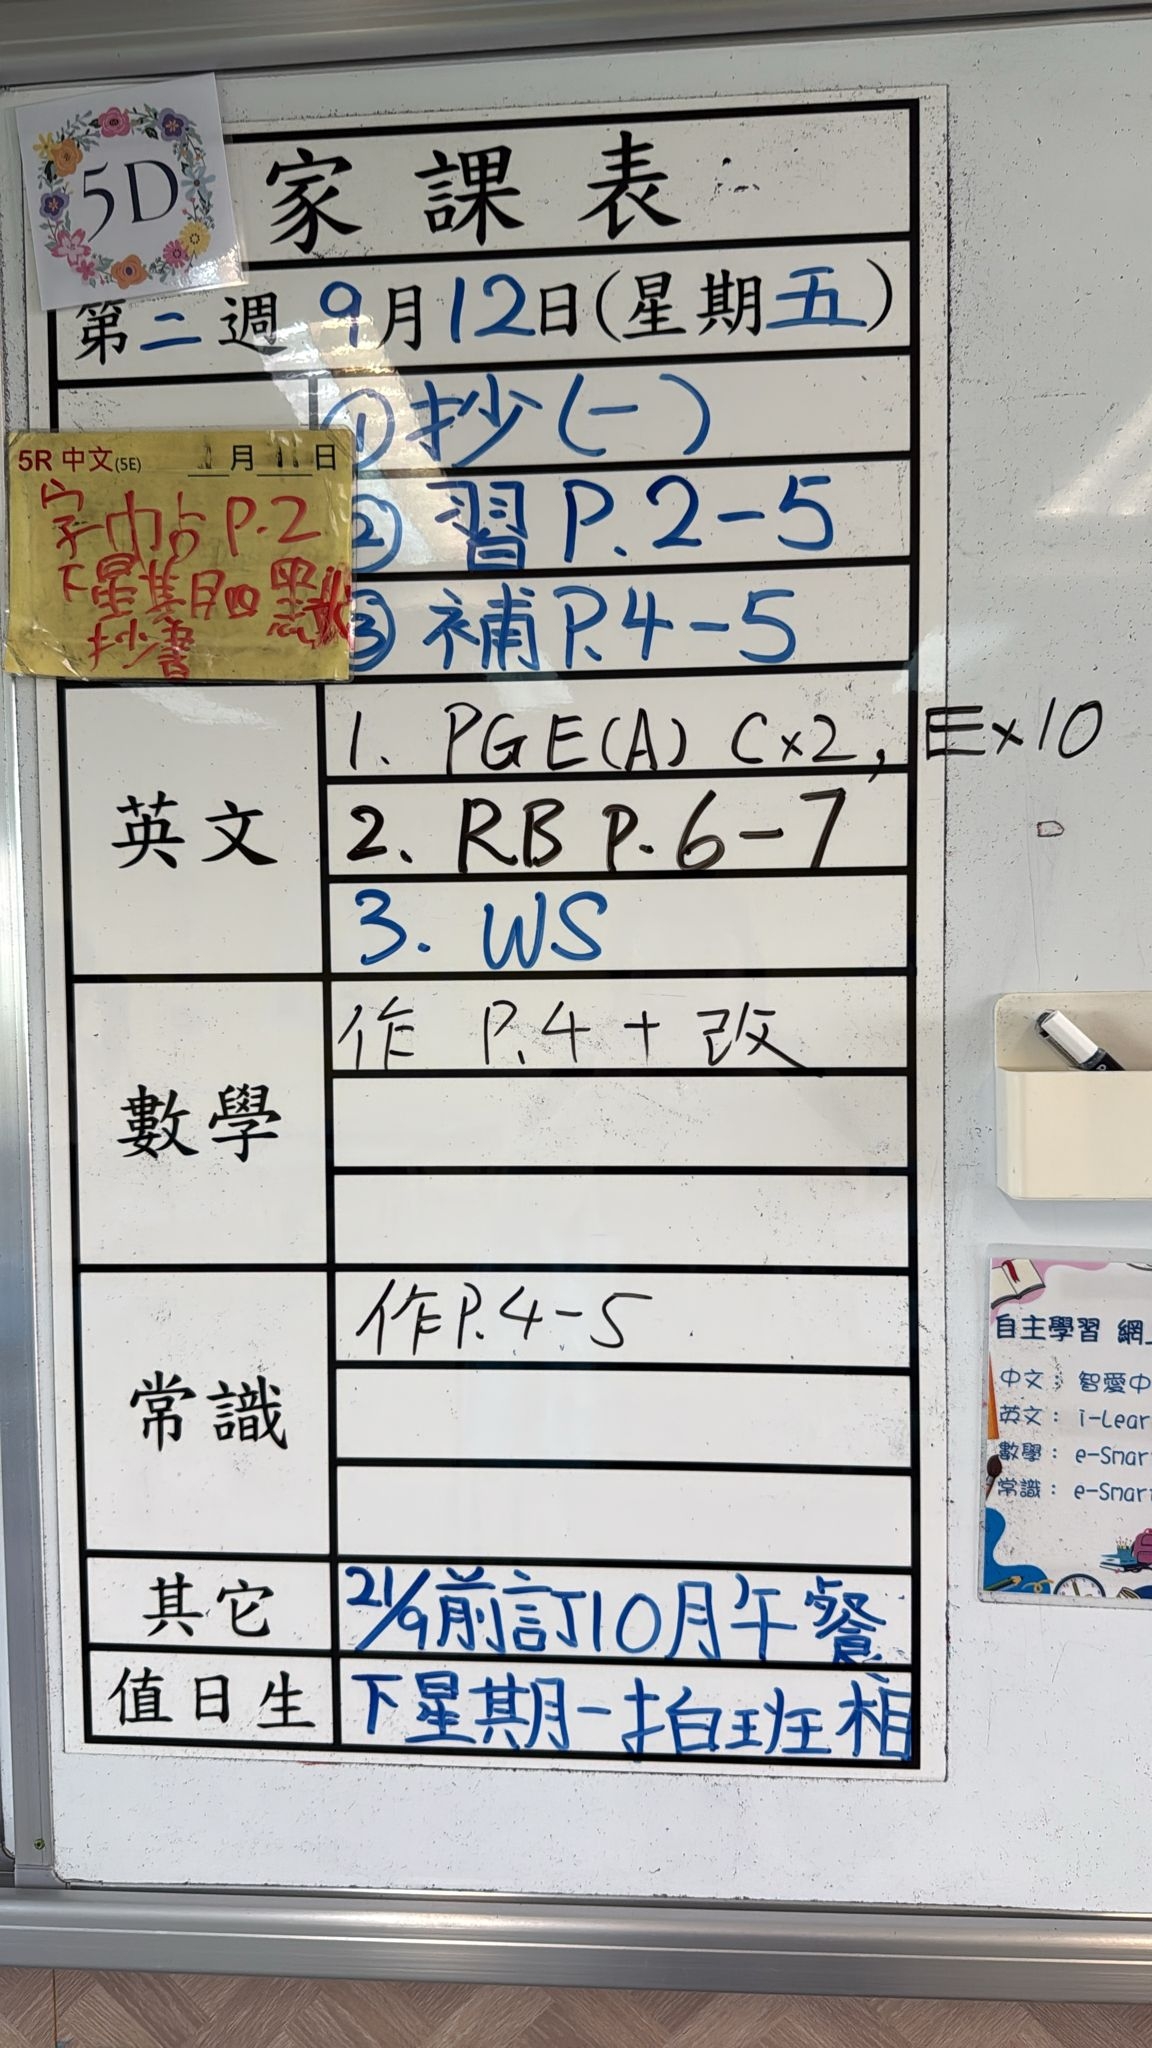 5D
家課表
第二週 9月12日(星期五)
①抄(一)
5R 中文(5E) 月 11 日
字帖 P.2
下星期四默
抄書
②習 P.2-5
③補 P.4-5
英文
1. PGE(A) C×2, E×10
2. RB P.6-7
3. WS
數學
作 P.4 + 改
常識
作P.4-5
其它
21/9前訂10月午餐
值日生
下星期一拍班相
自主學習 網
中文： 智愛中
英文： i-Lear
數學： e-Smar
常識： e-Smar